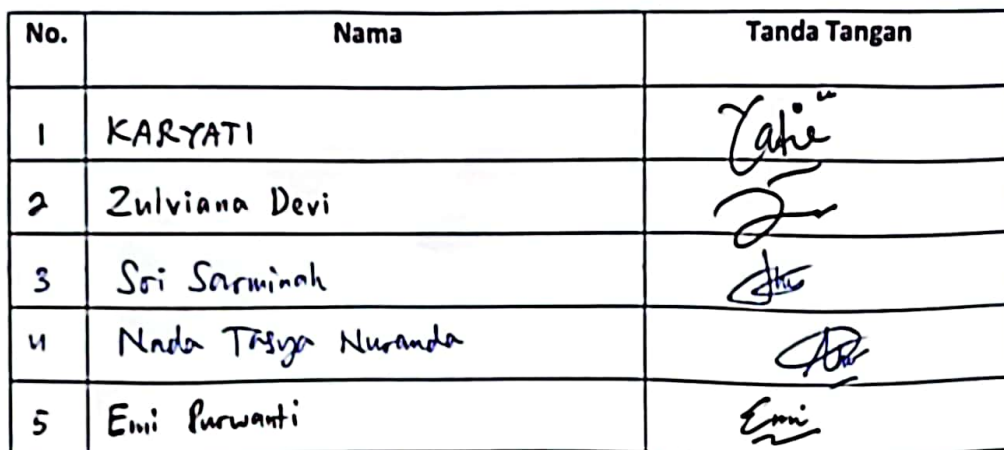 No. Nama Tanda Tangan
1 KARYATI Yatie
2 Zulviana Devi
3 Sri Sarminah
4 Nada Tasya Nuranda
5 Emi Purwanti Emi